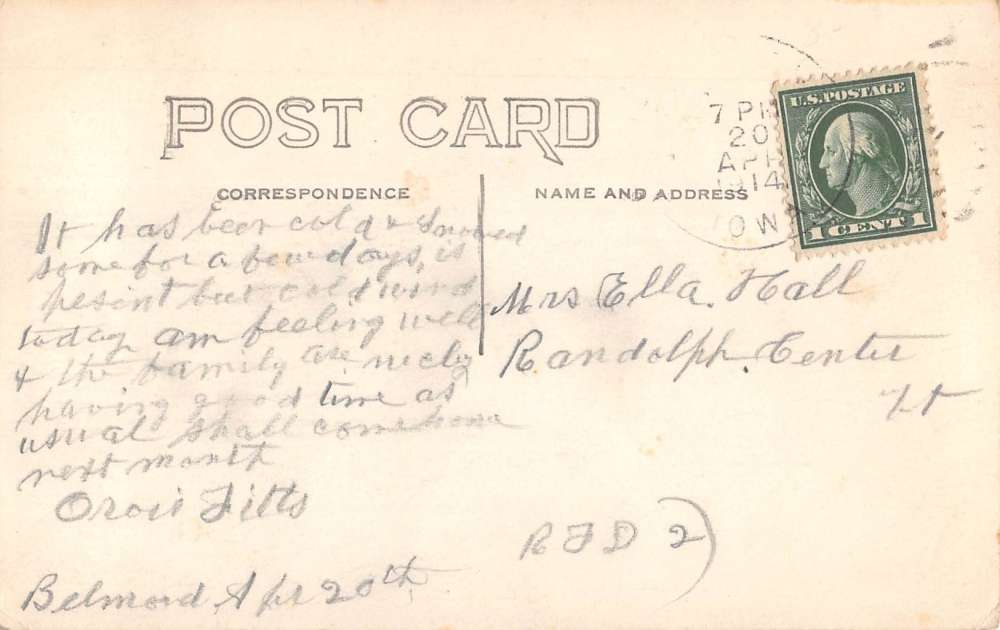 POST CARD
CORRESPONDENCE
NAME AND ADDRESS
7 PM
20
APR
1914
IOWA
U.S. POSTAGE
1 CENT 1
It has been cold & Snowed
some for a few days, is
pesint but cold wind
today am feeling well
& the family are nicely
having good time as
usual shall come home
next month
Fitts
Belmond, Apr 20th
Mrs Ella. Hall
Randolph Center
Vt
R F D 2)